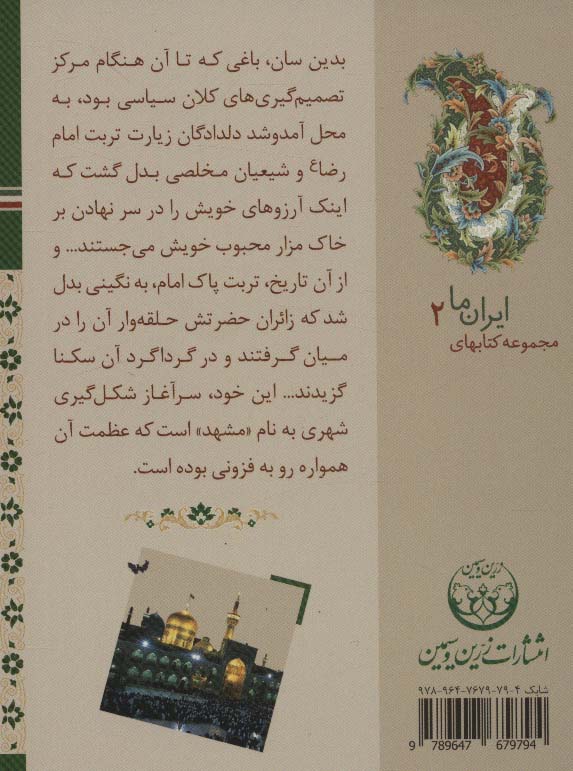 بدین سان، باغی که تا آن هنگام مرکز
تصمیم‌گیری‌های کلان سیاسی بود، به
محل آمدوشد دلدادگان زیارت تربت امام
رضاع و شیعیان مخلصی بدل گشت که
اینک آرزوهای خویش را در سر نهادن بر
خاک مزار محبوب خویش می‌جستند... و
از آن تاریخ، تربت پاک امام، به نگینی بدل
شد که زائران حضرتش حلقه‌وار آن را در
میان گرفتند و در گرداگرد آن سکنا
گزیدند... این خود، سرآغاز شکل‌گیری
شهری به نام «مشهد» است که عظمت آن
همواره رو به فزونی بوده است.
ایران ما ۲
مجموعه کتابهای
زرین و سیمین
انتشارات زرین و سیمین
شابک ۴-۷۹-۷۶۷۹-۹۶۴-۹۷۸
9 789647 679794